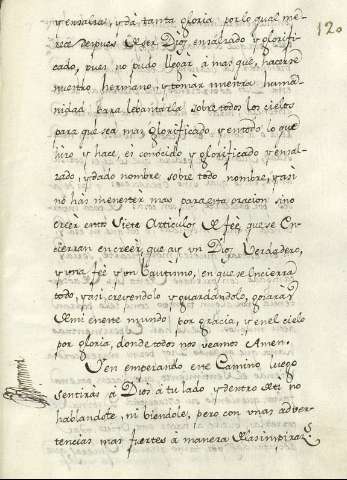 120
y ensalsa, y dà tanta gloria por lo qual me-
rece despues de ser Dios ensalzado y glorifi-
cado, pues no pudo llegàr à mas que, hacerse
nuestro hermano, y tomàr nuestra huma-
nidad para levantàrla sobre todos los cielos
para que sea mas glorificado y en todo lo que
hizo y hace, es conocido y glorificado y ensal-
zado, y dado nombre sobre todo nombre, y asi
no has menester mas para esta oracion sino
creèr estos Siete Articulos de Fèe, que se en-
cierran en creèr, que ay un Dios Verdadero,
y una feè y un Bautismo, en que se encierra
todo, y asi, creyendolo y guardàndolo, gozaràs
de mi en este mundo por gracia, y en el cielo
por gloria, donde todos nos veamos Amen.
Y en empezando este Camino luego
sentiràs à Dios à tu lado y dentro de ti no
hablandote, ni biendole, pero con unas adver-
tencias mas fuertes à manera de las inspiraz.s